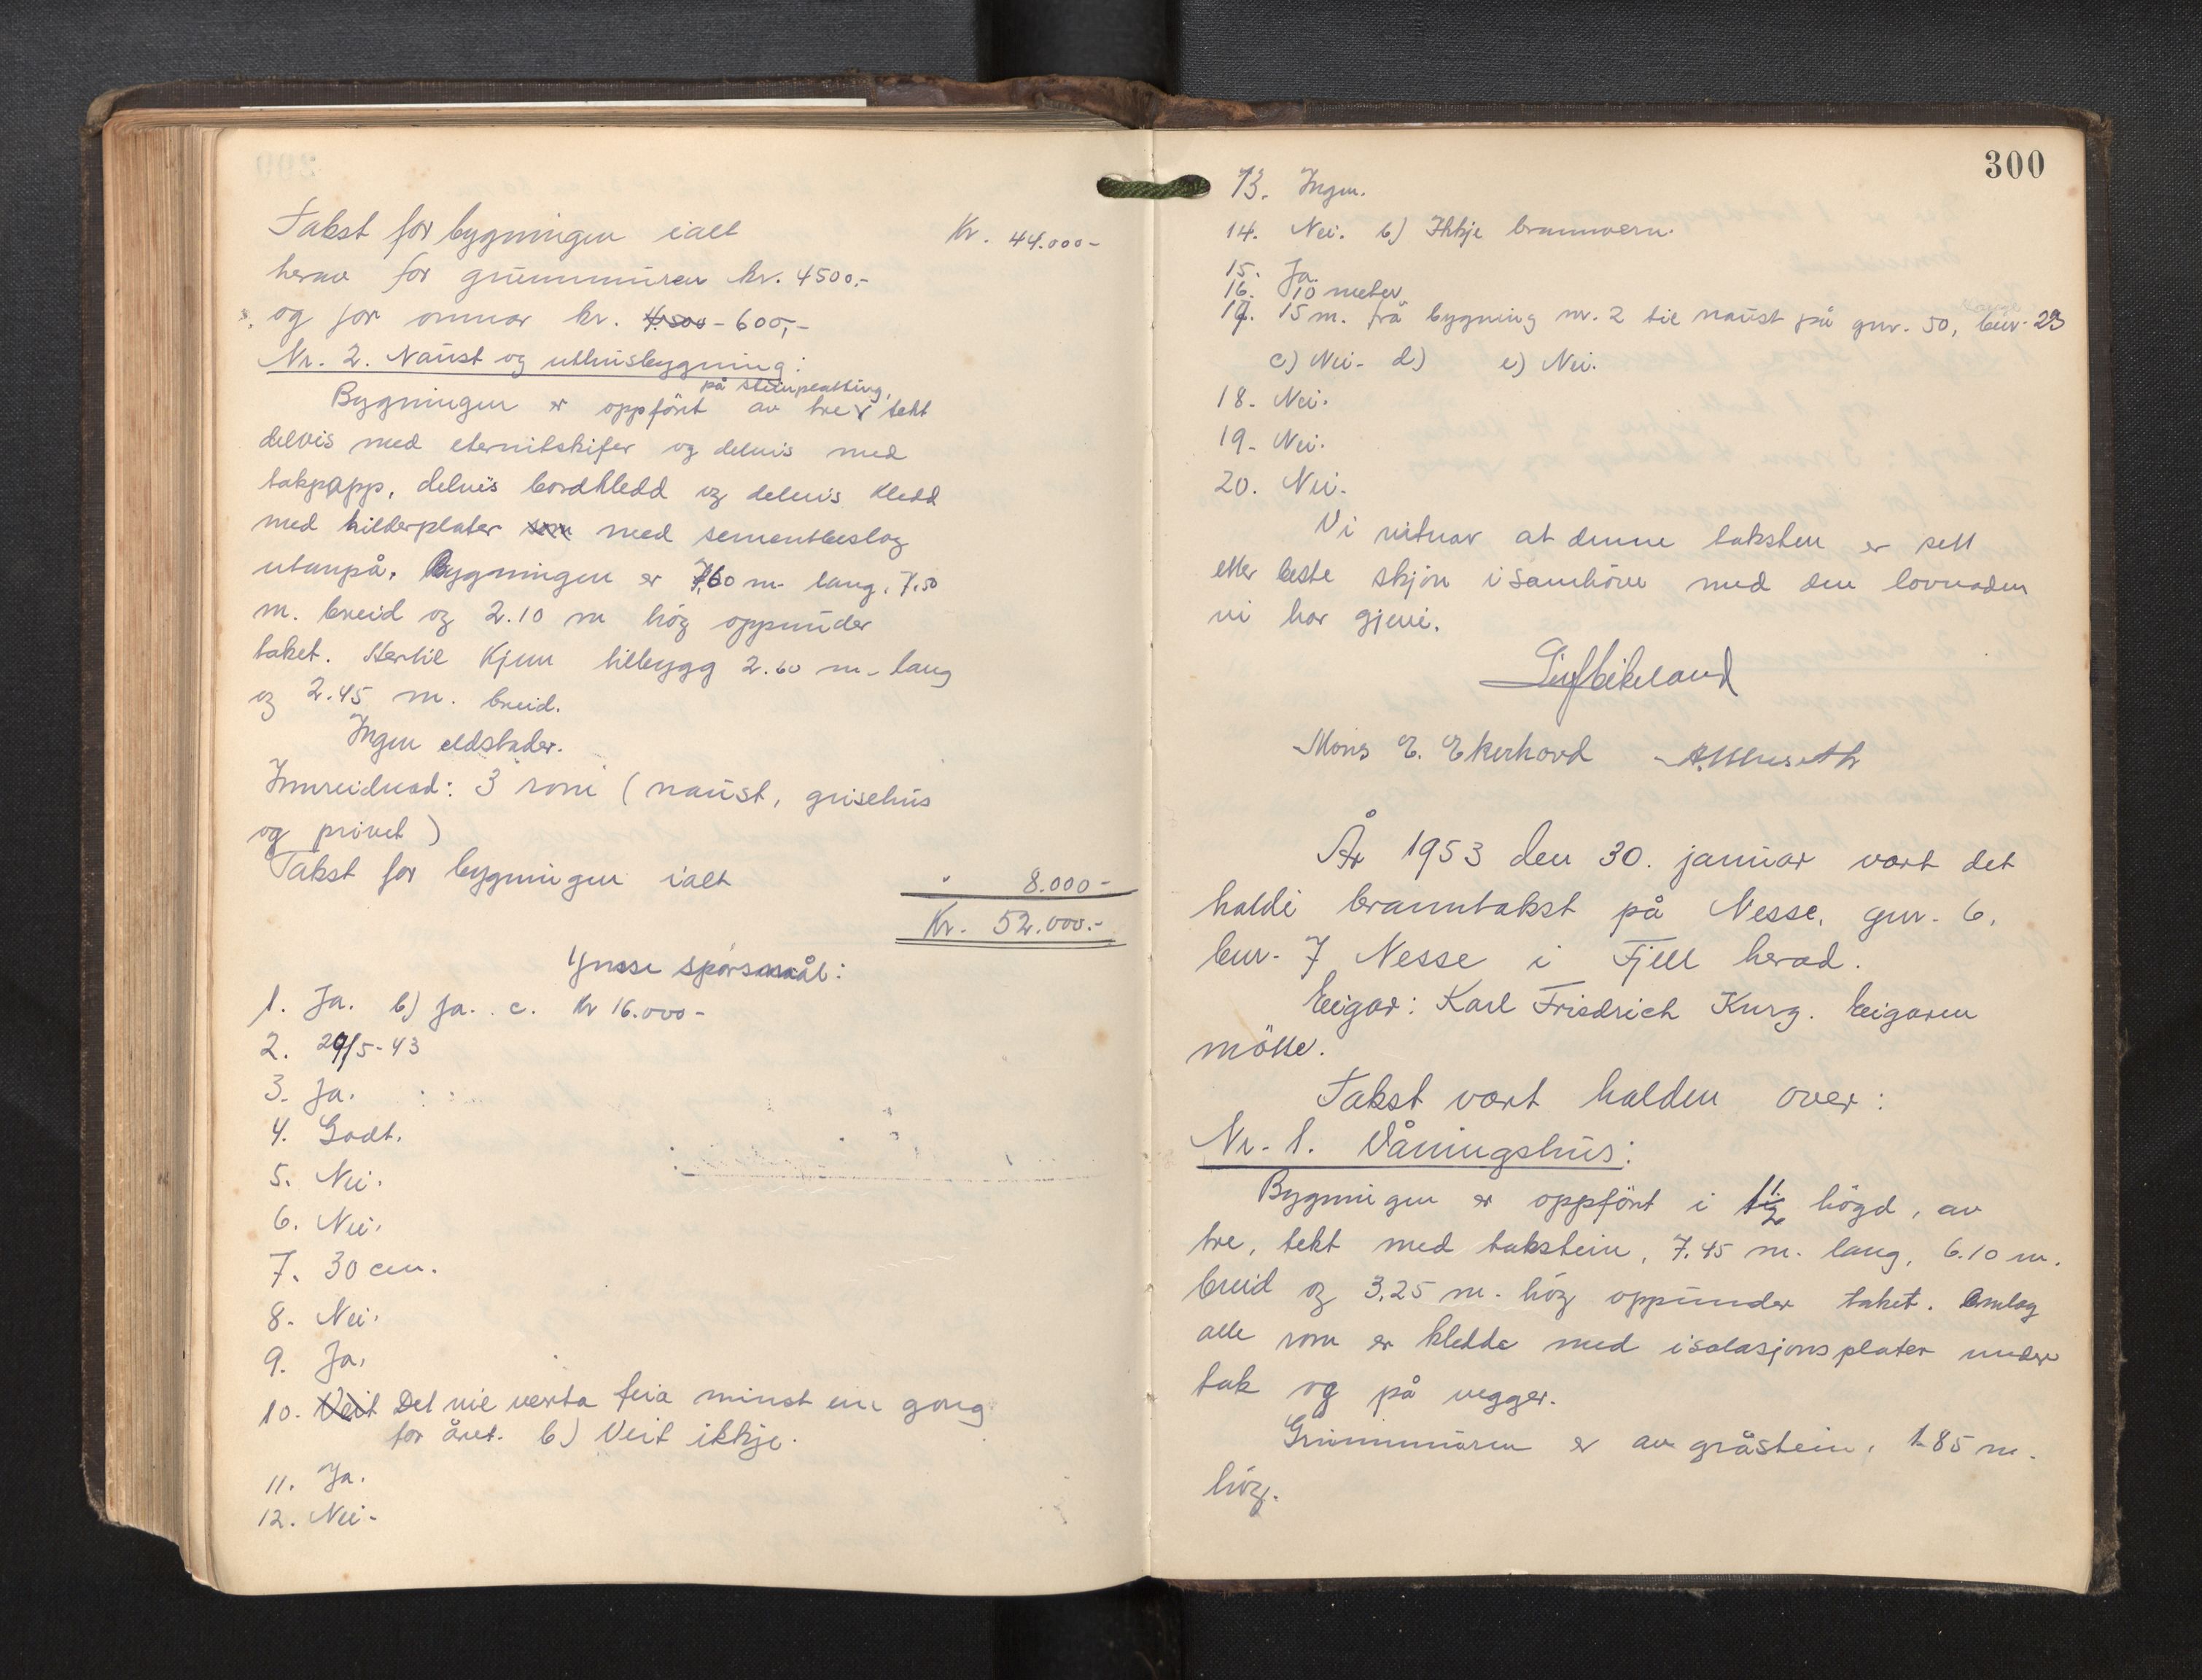 Takst for bygningen ialt Kr. 44.000-
herav for grunnmuren kr. 4500,-
og for omnar kr. 4.500 - 600,-
Nr. 2. Naust og uthusbygning:
på steinpeatting,
Bygningen er oppført av tre v tekt
delvis med eternitskifer og delvis med
takpapp, delvis bordkledd og delvis kledd
med hilderplater som med sementbeslag
utanpå. Bygningen er 7,60 m. lang, 7.50
m. breid og 2.10 m høg oppunder
taket. Hertil kjem tilbygg 2.60 m. lang
og 2.45 m. breid.
Ingen eldstader.
Innreidnad: 3 rom (naust, grisehus
og privet)
Takst for bygningen ialt " 8.000-
Kr. 52.000.-
Ymse spørsmål:
1. Ja. b) Ja. c. Kr 16.000-
2. 29/5-43
3. Ja.
4. Godt.
5. Nei.
6. Nei.
7. 30 cm.
8. Nei.
9. Ja.
10. Veit Det vil verta feia minst ein gong
for året. b) Veit ikkje.
11. Ja.
12. Nei.
300
13. Ingen.
14. Nei. b) Ikkje brannvern.
15. Ja.
16. 10 meter
17. 15 m. frå bygning nr. 2 til naust på gnr. 50, bnr. 23
c) Nei. d) e) Nei.
18. Nei.
19. Nei.
20. Nei.
Vi vitnar at denne taksten er sett
etter beste skjøn i samhøve med den lovnaden
vi har gjeve.
Mons E. Ekerhovd
År 1953 den 30. januar vart det
haldi branntakst på Nesse, gnr. 6,
bnr. 7 Nesse i Fjell herad.
Eigar: Karl Friedrich Kurz. Eigaren
møtte.
Takst vart halden over:
Nr. 1. Våningshus:
Bygningen er oppført i 1 1/2 høgd, av
tre, tekt med takstein, 7.45 m. lang, 6.10 m.
breid og 3.25 m. høg oppunder taket. Omlag
alle rom er kledde med isolasjonsplater under
tak og på vegger.
Grunnmuren er av gråstein, 1.85 m.
høg.